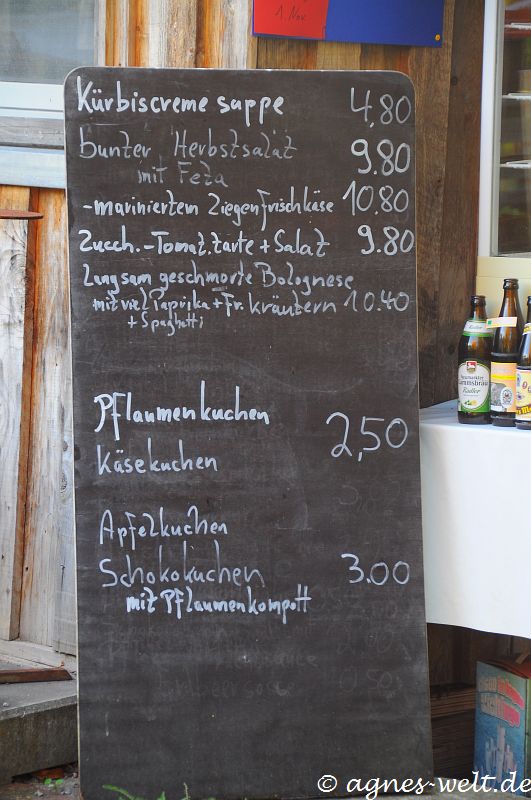 1. Nov.
Kürbiscreme sappe 4,80
bunter Herbstsalat 9.80
mit Feta
-mariniertem Ziegenfrischkäse 10.80
Zucch.-Tomat.tarte + Salat 9.80
Langsam geschmorte Bolognese
mit viel Paprika + Fr. kräutern 10.40
+ Spaghetti
Pflaumenkuchen 2,50
Käsekuchen
Apfelkuchen
Schokokuchen 3.00
mit Pflaumenkompott
Neumarkter
Lammsbräu
Radler
© agnes-welt.de